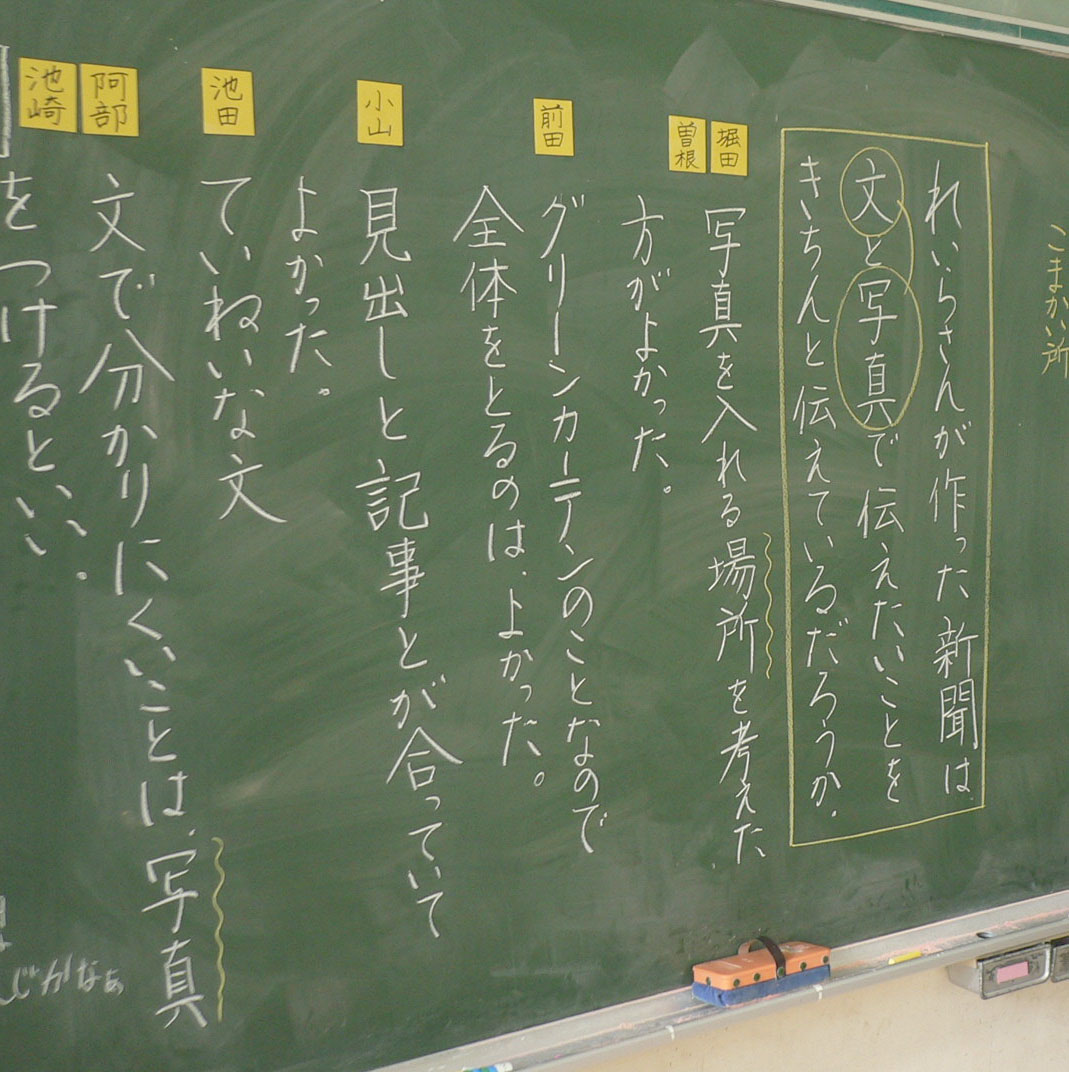 こまかい所
れいらさんが作った新聞は、
文と写真で伝えたいことを
きちんと伝えているだろうか。
堀田
曽根
写真を入れる場所を考えた
方がよかった。
前田
グリーンカーテンのことなので
全体をとるのは、よかった。
小山
見出しと記事とが合っていて
よかった。
池田
ていねいな文
阿部
池崎
文で分かりにくいことは、写真
をつけるといい。
じかなぁ